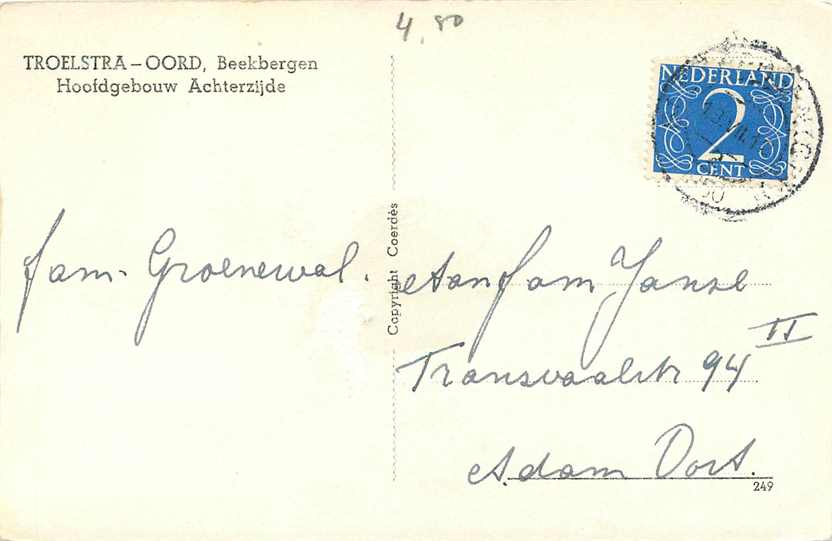 4.80
TROELSTRA-OORD, Beekbergen
Hoofdgebouw Achterzijde
NEDERLAND
2
CENT
fam. Groenewal.
Copyright Coerdès
Aan fam Janse
Transvaalstr 94 II
A.dam Oost.
249